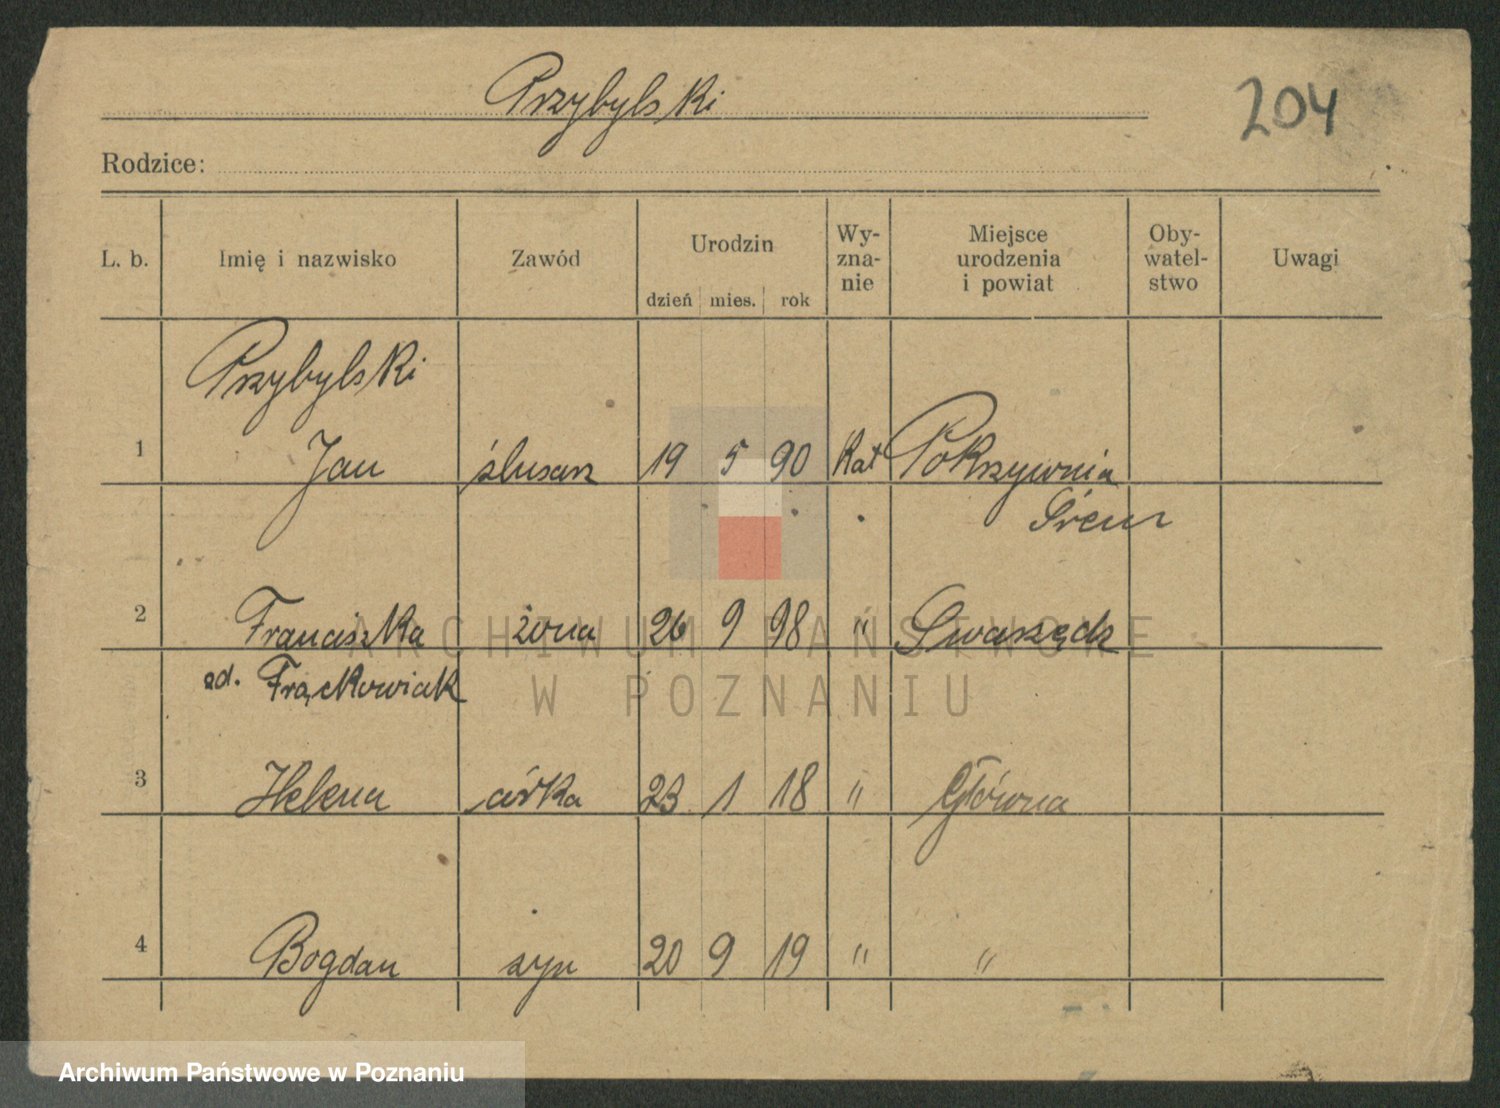 Przybylski
204
Rodzice:
L. b. Imię i nazwisko Zawód Urodzin dzień mies. rok Wy-zna-nie Miejsce urodzenia i powiat Oby-watel-stwo Uwagi
Przybylski
1 Jan ślusarz 19 5 90 Kat Pokrzywnia
Śrem
2 Franciszka żona 26 9 98 " Swarzędz
od. Frąckowiak
3 Helena córka 23 1 18 " Główna
4 Bogdan syn 20 9 19 " "
ARCHIWUM PAŃSTWOWE
W POZNANIU
Archiwum Państwowe w Poznaniu